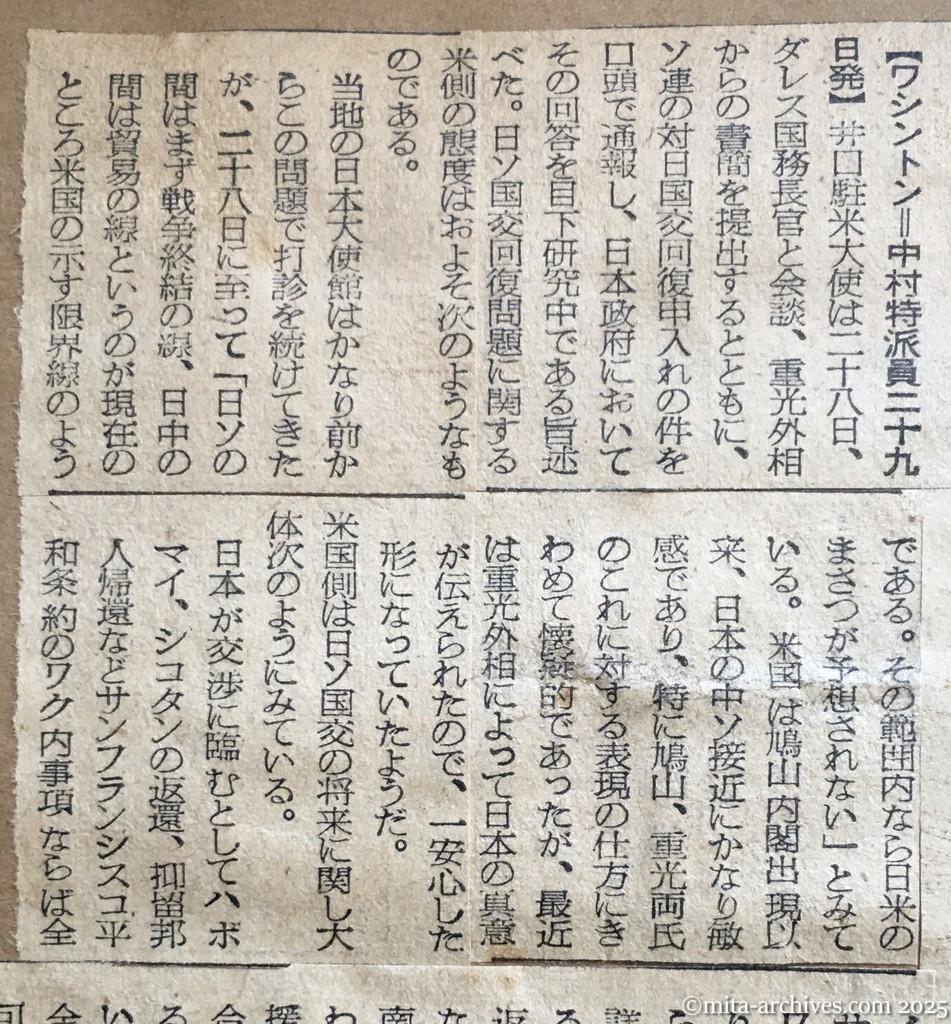 【ワシントン＝中村特派員二十九
日発】井口駐米大使は二十八日、
ダレス国務長官と会談、重光外相
からの書簡を提出するとともに、
ソ連の対日国交回復申入れの件を
口頭で通報し、日本政府において
その回答を目下研究中である旨述
べた。日ソ国交回復問題に関する
米側の態度はおよそ次のようなも
のである。
当地の日本大使館はかなり前か
らこの問題で打診を続けてきた
が、二十八日に至って「日ソの
間はまず戦争終結の線、日中の
間は貿易の線というのが現在の
ところ米国の示す限界線のよう
である。その範囲内なら日米の
まさつが予想されない」とみて
いる。米国は鳩山内閣出現以
来、日本の中ソ接近にかなり敏
感であり、特に鳩山、重光両氏
のこれに対する表現の仕方にき
わめて懐疑的であったが、最近
は重光外相によって日本の真意
が伝えられたので、一安心した
形になっていたようだ。
米国側は日ソ国交の将来に関し大
体次のようにみている。
日本が交渉に臨むとしてハボ
マイ、シコタンの返還、抑留邦
人帰還などサンフランシスコ平
和条約のワク内事項ならば全
©mita-archives.com 2025